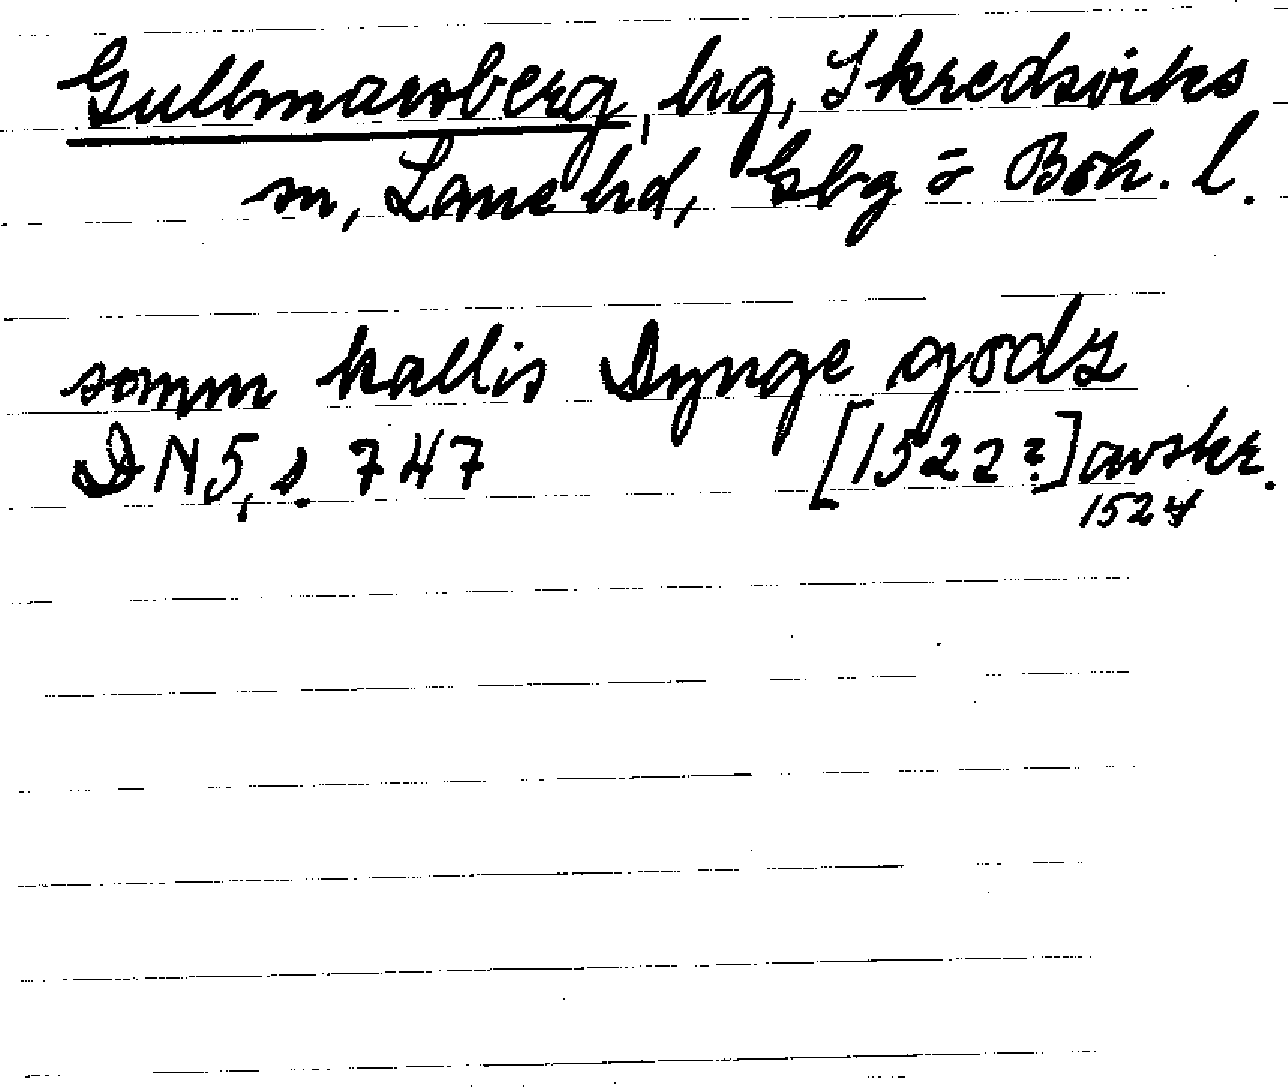 Gullmarsberg, hg, Skredsviks
sn, Lane hd, Gbg o Boh. l.
somm kallis Dynge godz
DN 5, s. 747 [1522?] avskr.
1524